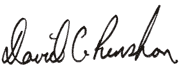 David C Renshaw